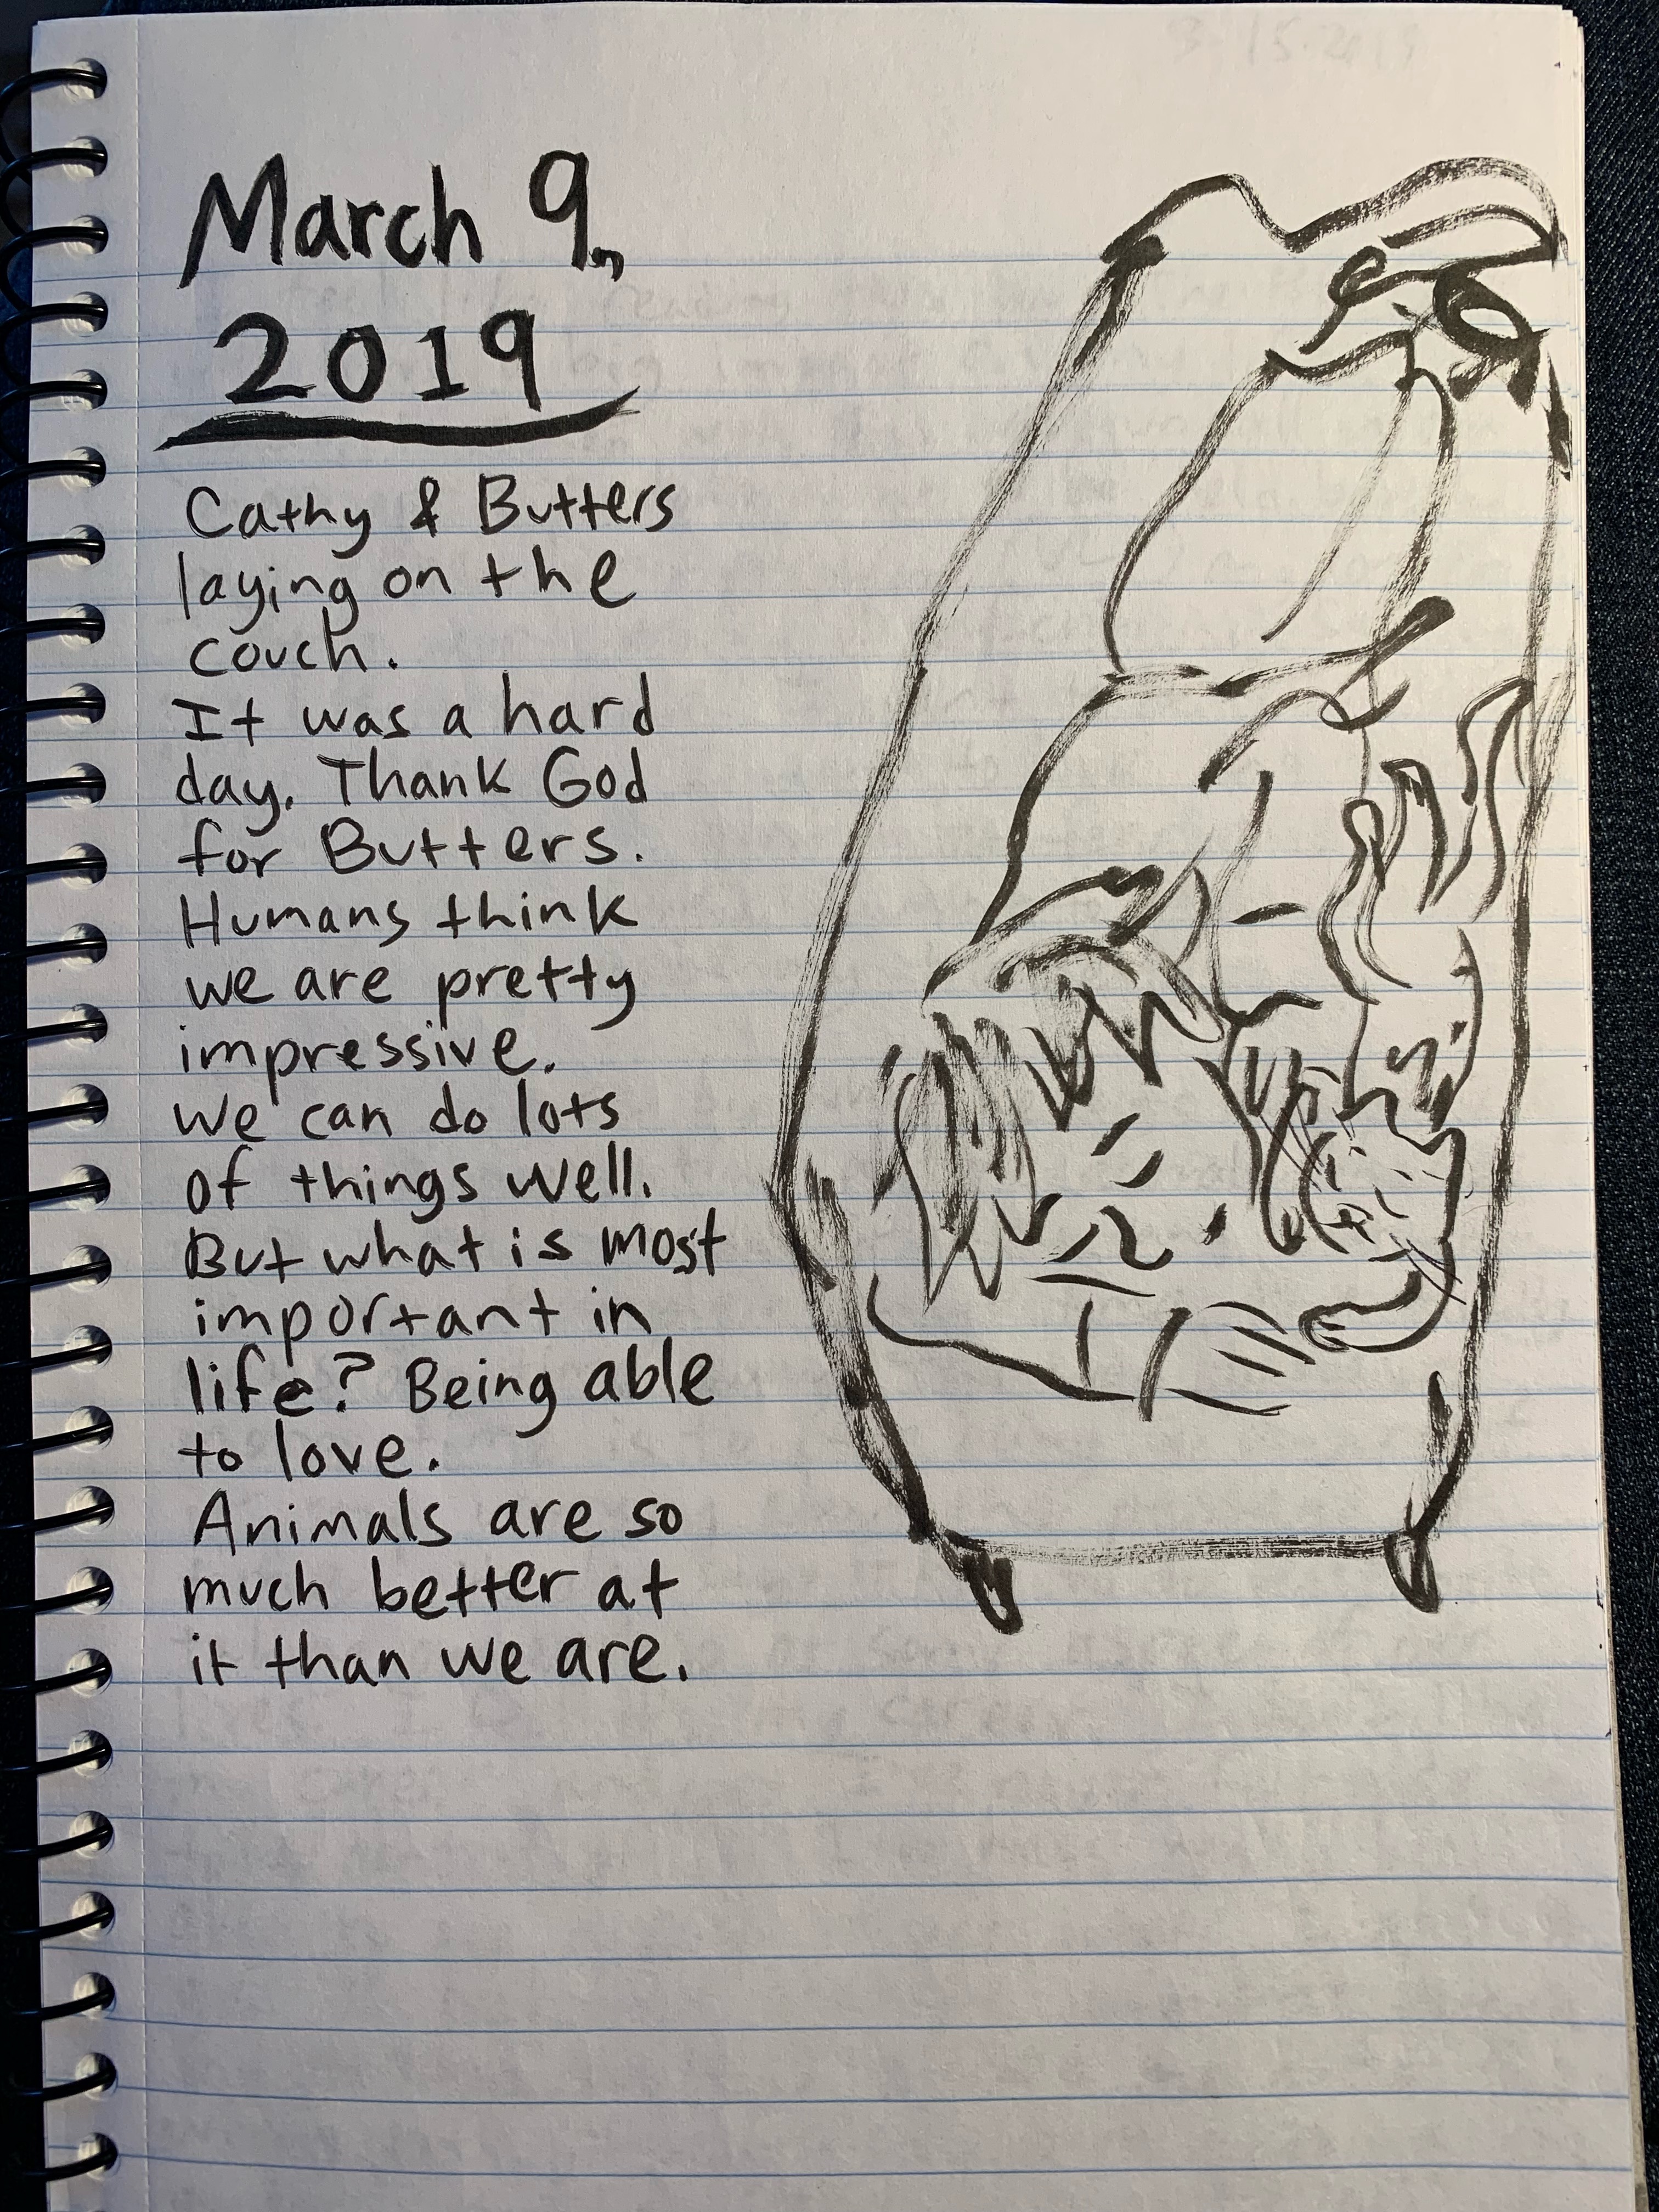 March 9,
2019
Cathy & Butters
laying on the
couch.
It was a hard
day. Thank God
for Butters.
Humans think
we are pretty
impressive.
We can do lots
of things well.
But what is most
important in
life? Being able
to love.
Animals are so
much better at
it than we are.